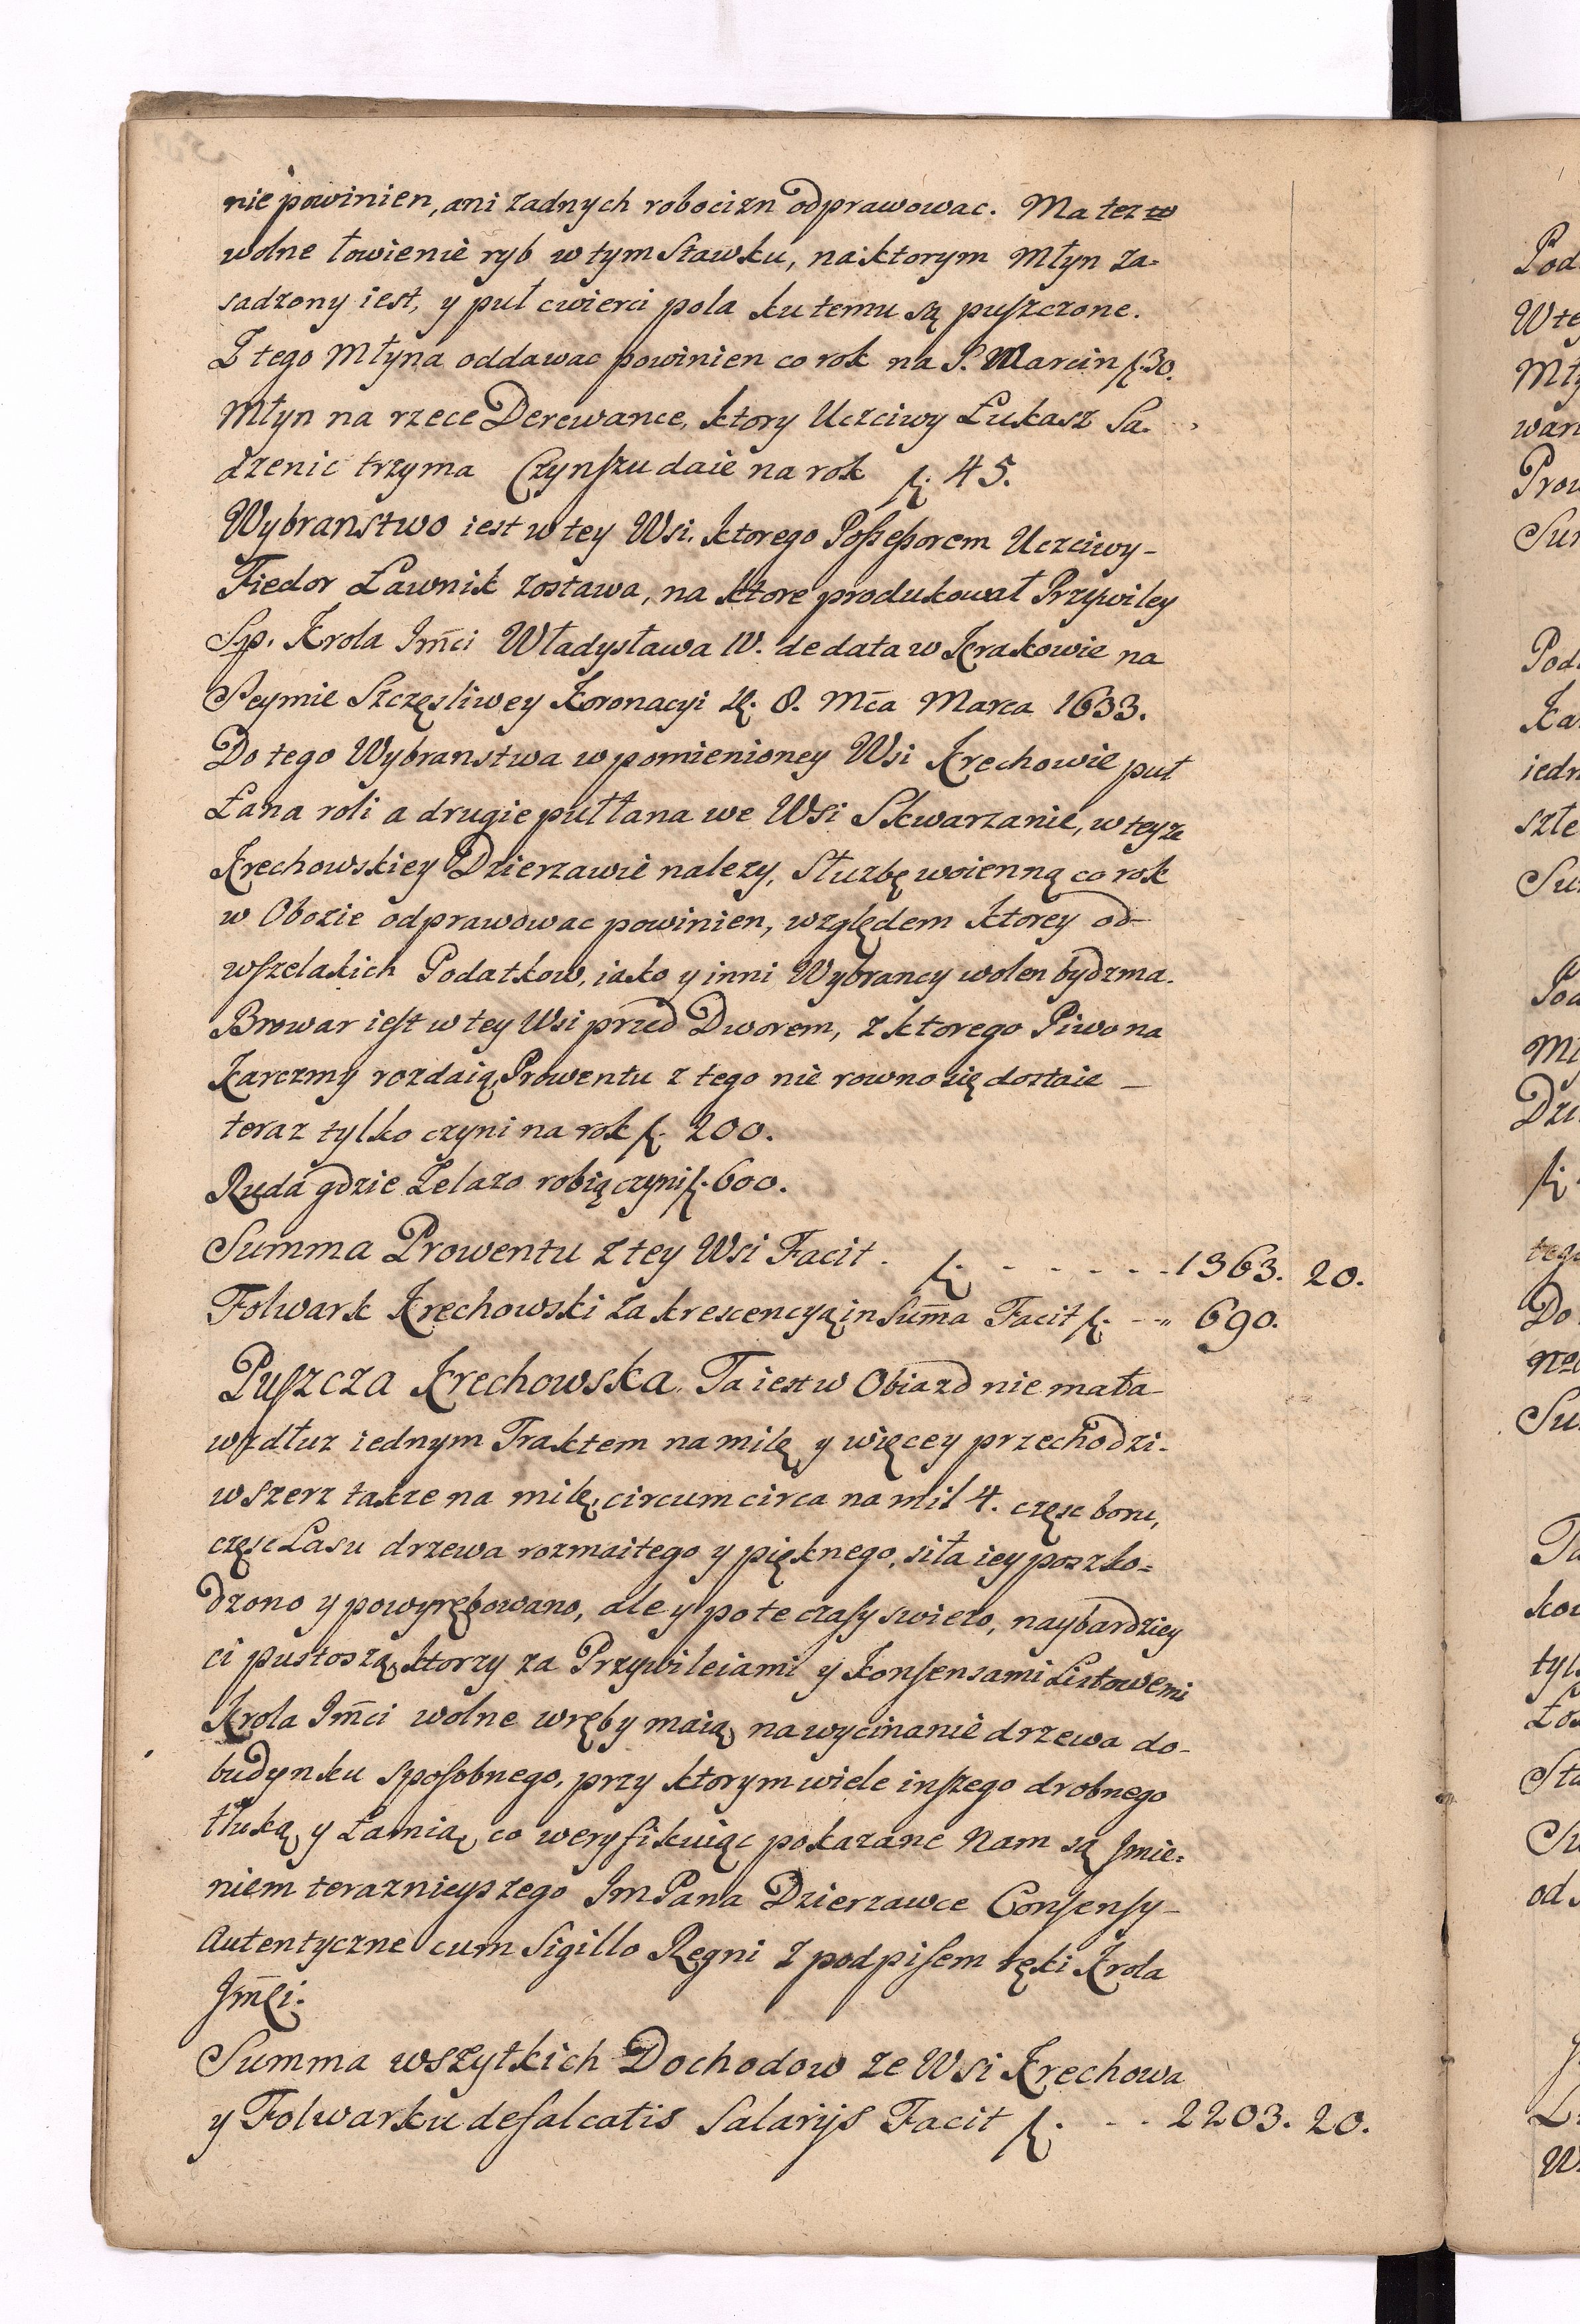 nie powinien, ani zadnych robocizn odprawowac. Ma tez
wolne łowienie ryb w tym Stawku, na ktorym Młyn za=
sadzony iest, y puł cwierci pola ku temu są puszczone.
Z tego Młyna oddawac powinien co rok na S. Marcin fl. 30.
Młyn na rzece Derewance, ktory Uczciwy Łukasz Sa-
dzenic trzyma Czynszu daie na rok fl. 45.
Wybranstwo iest w tey Wsi, ktorego Possessorem Uczciwy-
Fiedor Ławnik zostawa, na ktore produkował Przywiley
Sp. Krola Jmci Władysława IV. de data w Krakowie na
Seymie Szczęsliwey Koronacyi D. 8. Mca Marca 1633.
Do tego Wybranstwa w pomienioney Wsi Krechowie puł
Łana roli a drugie puł łana we Wsi Skwarzanie, w teyze
Krechowskiey Dzierzawie nalezy, Słuzbę woienną co rok
w Obozie odprawowac powinien, względem ktorey od-
wszelakich Podatkow, iako y inni Wybrancy wolen bydz ma.
Browar iest w tey Wsi przed Dworem, z ktorego Piwo na
Karczmy rozdaią, Prowentu z tego nie rowno się dostaie-
teraz tylko czyni na rok fl. 200.
Ruda gdzie Zelazo robią czyni fl. 600.
Summa Prowentu z tey Wsi Facit. fl. - - - - - - 1363. 20.
Folwark Krechowski za krescencyą in Suma Facit fl. - - " 690.
Puszcza Krechowska. Ta iest w Obiazd nie mała-
wzdłuz iednym Traktem na milę y więcey przechodzi-
w szerz takze na milę, circum circa na mil 4. częsc boru,
częsc Lasu drzewa rozmaitego y pięknego, siła iey poszko=
dzono y powyrębowano, ale y po te czasy swiezo, naybardziey
ci pustoszą, ktorzy za Przywileiami y Konsensami Listowemi
Krola Jmci wolne wręby maią na wycinanie drzewa do-
budynku sposobnego, przy ktorym wiele inszego drobnego
tłuką y Łamią, co weryfikuiąc pokazane Nam są Jmie=
niem teraznieyszego Jm Pana Dzierzawce Consensy-
Autentyczne cum Sigillo Regni z podpisem ręki Krola
Jmci.
Summa wszytkich Dochodow ze Wsi Krechowa
y Folwarku defalcatis Salarijs Facit fl. - - - 2203. 20.